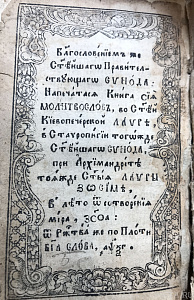 Благословенїемъ же
Ст҃ѣйшагѡ Правител-
ствующагѡ Сѵнода:
Напечатася Книга сїѧ
МОЛИТВОСЛОВЪ, во Ст҃ѣй
Кїевопечерской ЛАѴРѢ,
в Ставропигїи тогѡжде
Ст҃ѣйшагѡ Сѵнода,
при Архїмандрітѣ
тоѧжде Ст҃ыѧ Лаѵры
ЗѠСІМѢ,
В' лѣто ѿ сотворенїѧ
міра,
ѿ Рж҃тва же по Плоти
БГ҃А СЛОВА,